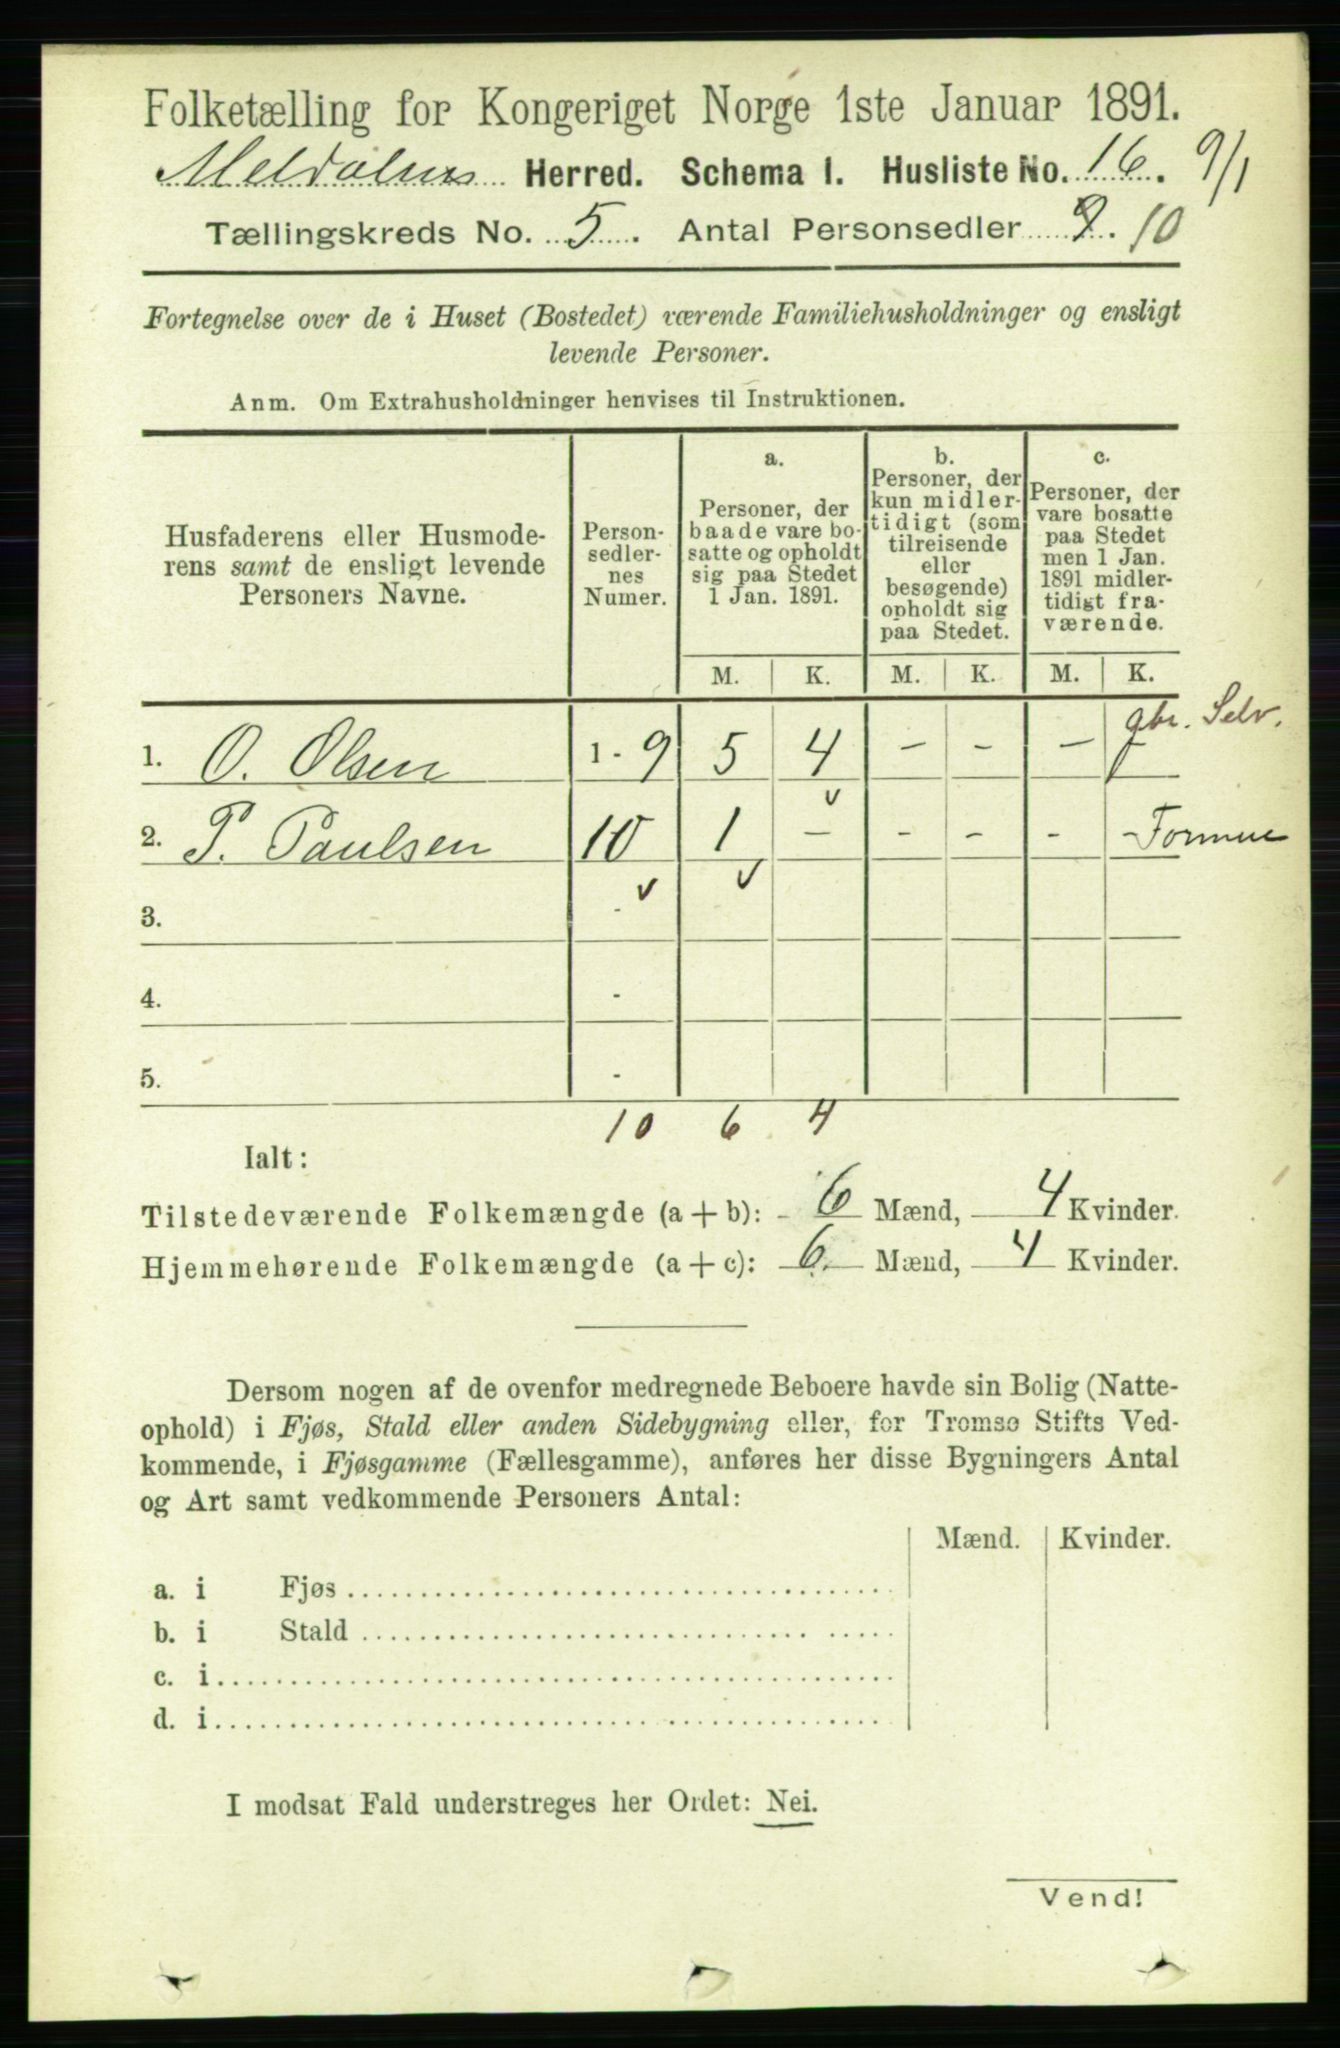 Folketælling for Kongeriget Norge 1ste Januar 1891.
Meldalens Herred. Schema 1. Husliste No. 16. 9/1
Tællingskreds No. 5. Antal Personsedler 9. 10
Fortegnelse over de i Huset (Bostedet) værende Familiehusholdninger og ensligt
levende Personer.
Anm. Om Extrahusholdninger henvises til Instruktionen.
Husfaderens eller Husmode-
rens samt de ensligt levende
Personers Navne.
Person-
sedler-
nes
Numer.
a.
Personer, der
baade vare bo-
satte og opholdt
sig paa Stedet
1 Jan. 1891.
b.
Personer, der
kun midler-
tidigt (som
tilreisende
eller
besøgende)
opholdt sig
paa Stedet.
c.
Personer, der
vare bosatte
paa Stedet
men 1 Jan.
1891 midler-
tidigt fra-
værende.
M. K. M. K. M. K.
gbr. Selv.
1. O. Olsen 1 - 9 5 4 – – –
2. P. Paulsen 10 1 – - - - - Formue
3. -
4. -
5. -
10 6 4
Ialt:
Tilstedeværende Folkemængde (a + b): 6 Mænd, 4 Kvinder.
Hjemmehørende Folkemængde (a + c): 6 Mænd, 4 Kvinder.
Dersom nogen af de ovenfor medregnede Beboere havde sin Bolig (Natte-
ophold) i Fjøs, Stald eller anden Sidebygning eller, for Tromsø Stifts Ved-
kommende, i Fjøsgamme (Fællesgamme), anføres her disse Bygningers Antal
og Art samt vedkommende Personers Antal:
Mænd. Kvinder.
a. i Fjøs
b. i Stald
c. i
d. i
I modsat Fald understreges her Ordet: Nei.
Vend!